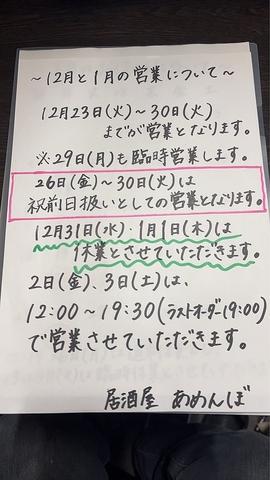 ～12月と1月の営業について～
12月23日(火)～30日(火)
までが営業となります。
※29日(月)も臨時営業します。
26日(金)～30日(火)は
祝前日扱いとしての営業となります。
12月31日(水)・1月1日(木)は
休業とさせていただきます。
2日(金)、3日(土)は、
12:00～19:30(ラストオーダー19:00)
で営業させていただきます。
居酒屋 あめんぼ